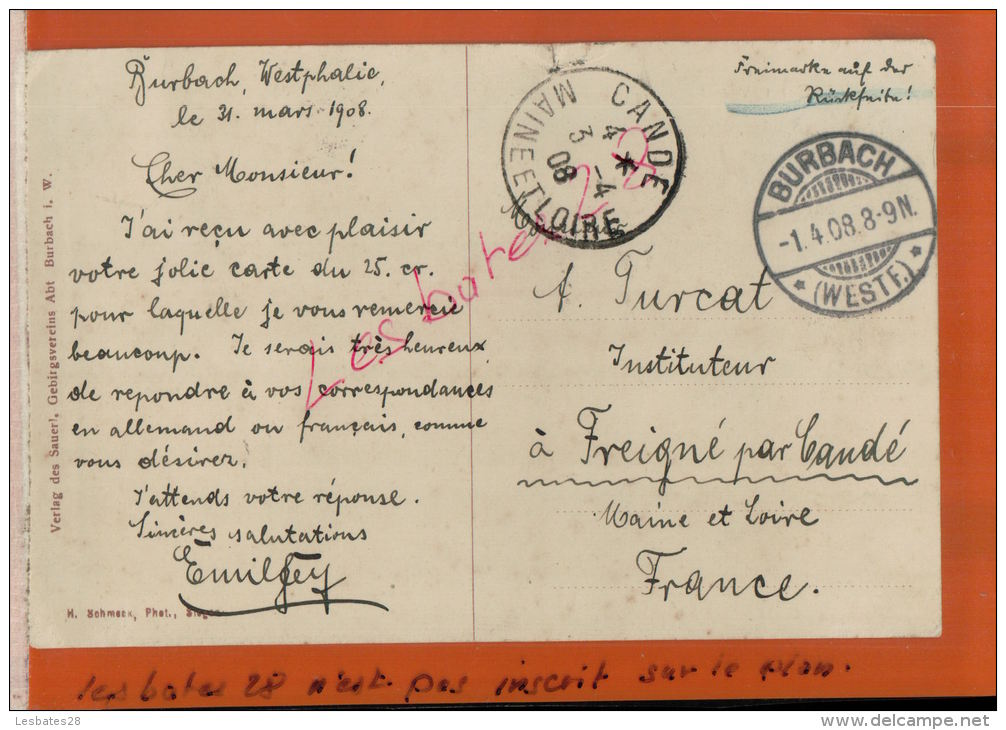 Burbach, Westphalie,
le 31. mars 1908.
Cher Monsieur!
J'ai reçu avec plaisir
votre jolie carte du 25. cr.
pour laquelle je vous remercie
beaucoup. Je serais très heureux
de repondre à vos correspondances
en allemand ou français, comme
vous désirez.
J'attends votre réponse.
Sincères salutations
Emil Gey
H. Schmeck, Phot., Siegen
Verlag des Sauerl. Gebirgsvereins Abt Burbach i. W.
Freimarke auf der
Rückseite!
CANDE
4 * -4
3 08
MAINE ET LOIRE
BURBACH
-1.4.08.8-9N.
* (WESTF.) *
Monsieur
A. Turcat
Instituteur
à Freigné par Candé
Maine et Loire
France.
Les bates 28
les bates 28 n'est pas inscrit sur le plan.
Lesbates28
http://www.delcampe.net